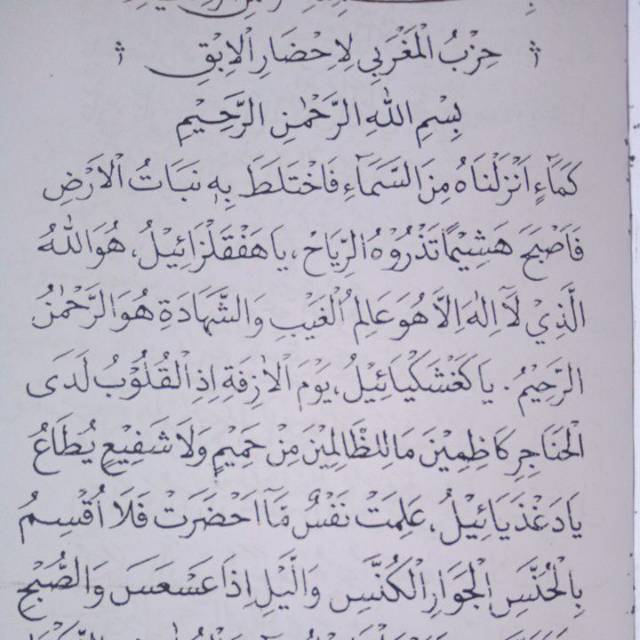 حِزْبُ الْمَغْرَبِي لِاِحْضَارِ اْلاِبْقِ
بِسْمِ اللهِ الرَّحْمٰنِ الرَّحِيْمِ
كَمَاۤءٍ اَنْزَلْنَاهُ مِنَ السَّمَاۤءِ فَاخْتَلَطَ بِهٖ نَبَاتُ اْلاَرْضِ
فَاَصْبَحَ هَشِيْمًا تَذْرُوْهُ الرِّيَاحُ ، يَا هَفْقَلْزَائِيْلُ ، هُوَ اللهُ
الَّذِيْ لَاۤ اِلٰهَ اِلاَّ هُوَ عَالِمُ الْغَيْبِ وَالشَّهَادَةِ هُوَ الرَّحْمٰنُ
الرَّحِيْمُ . يَا كَغَشْكَيَائِيْلُ ، يَوْمَ اْلاٰزِفَةِ اِذِ الْقُلُوْبُ لَدَى
الْحَنَاجِرِ كَاظِمِيْنَ مَا لِلظَّالِمِيْنَ مِنْ حَمِيْمٍ وَلَا شَفِيْعٍ يُطَاعُ
يَا دَغْذَيَائِيْلُ ، عَلِمَتْ نَفْسٌ مَاۤ اَحْضَرَتْ فَلَا اُقْسِمُ
بِالْخُنَّسِ الْجَوَارِ الْكُنَّسِ وَالَّيْلِ اِذَا عَسْعَسَ وَالصُّبْحِ